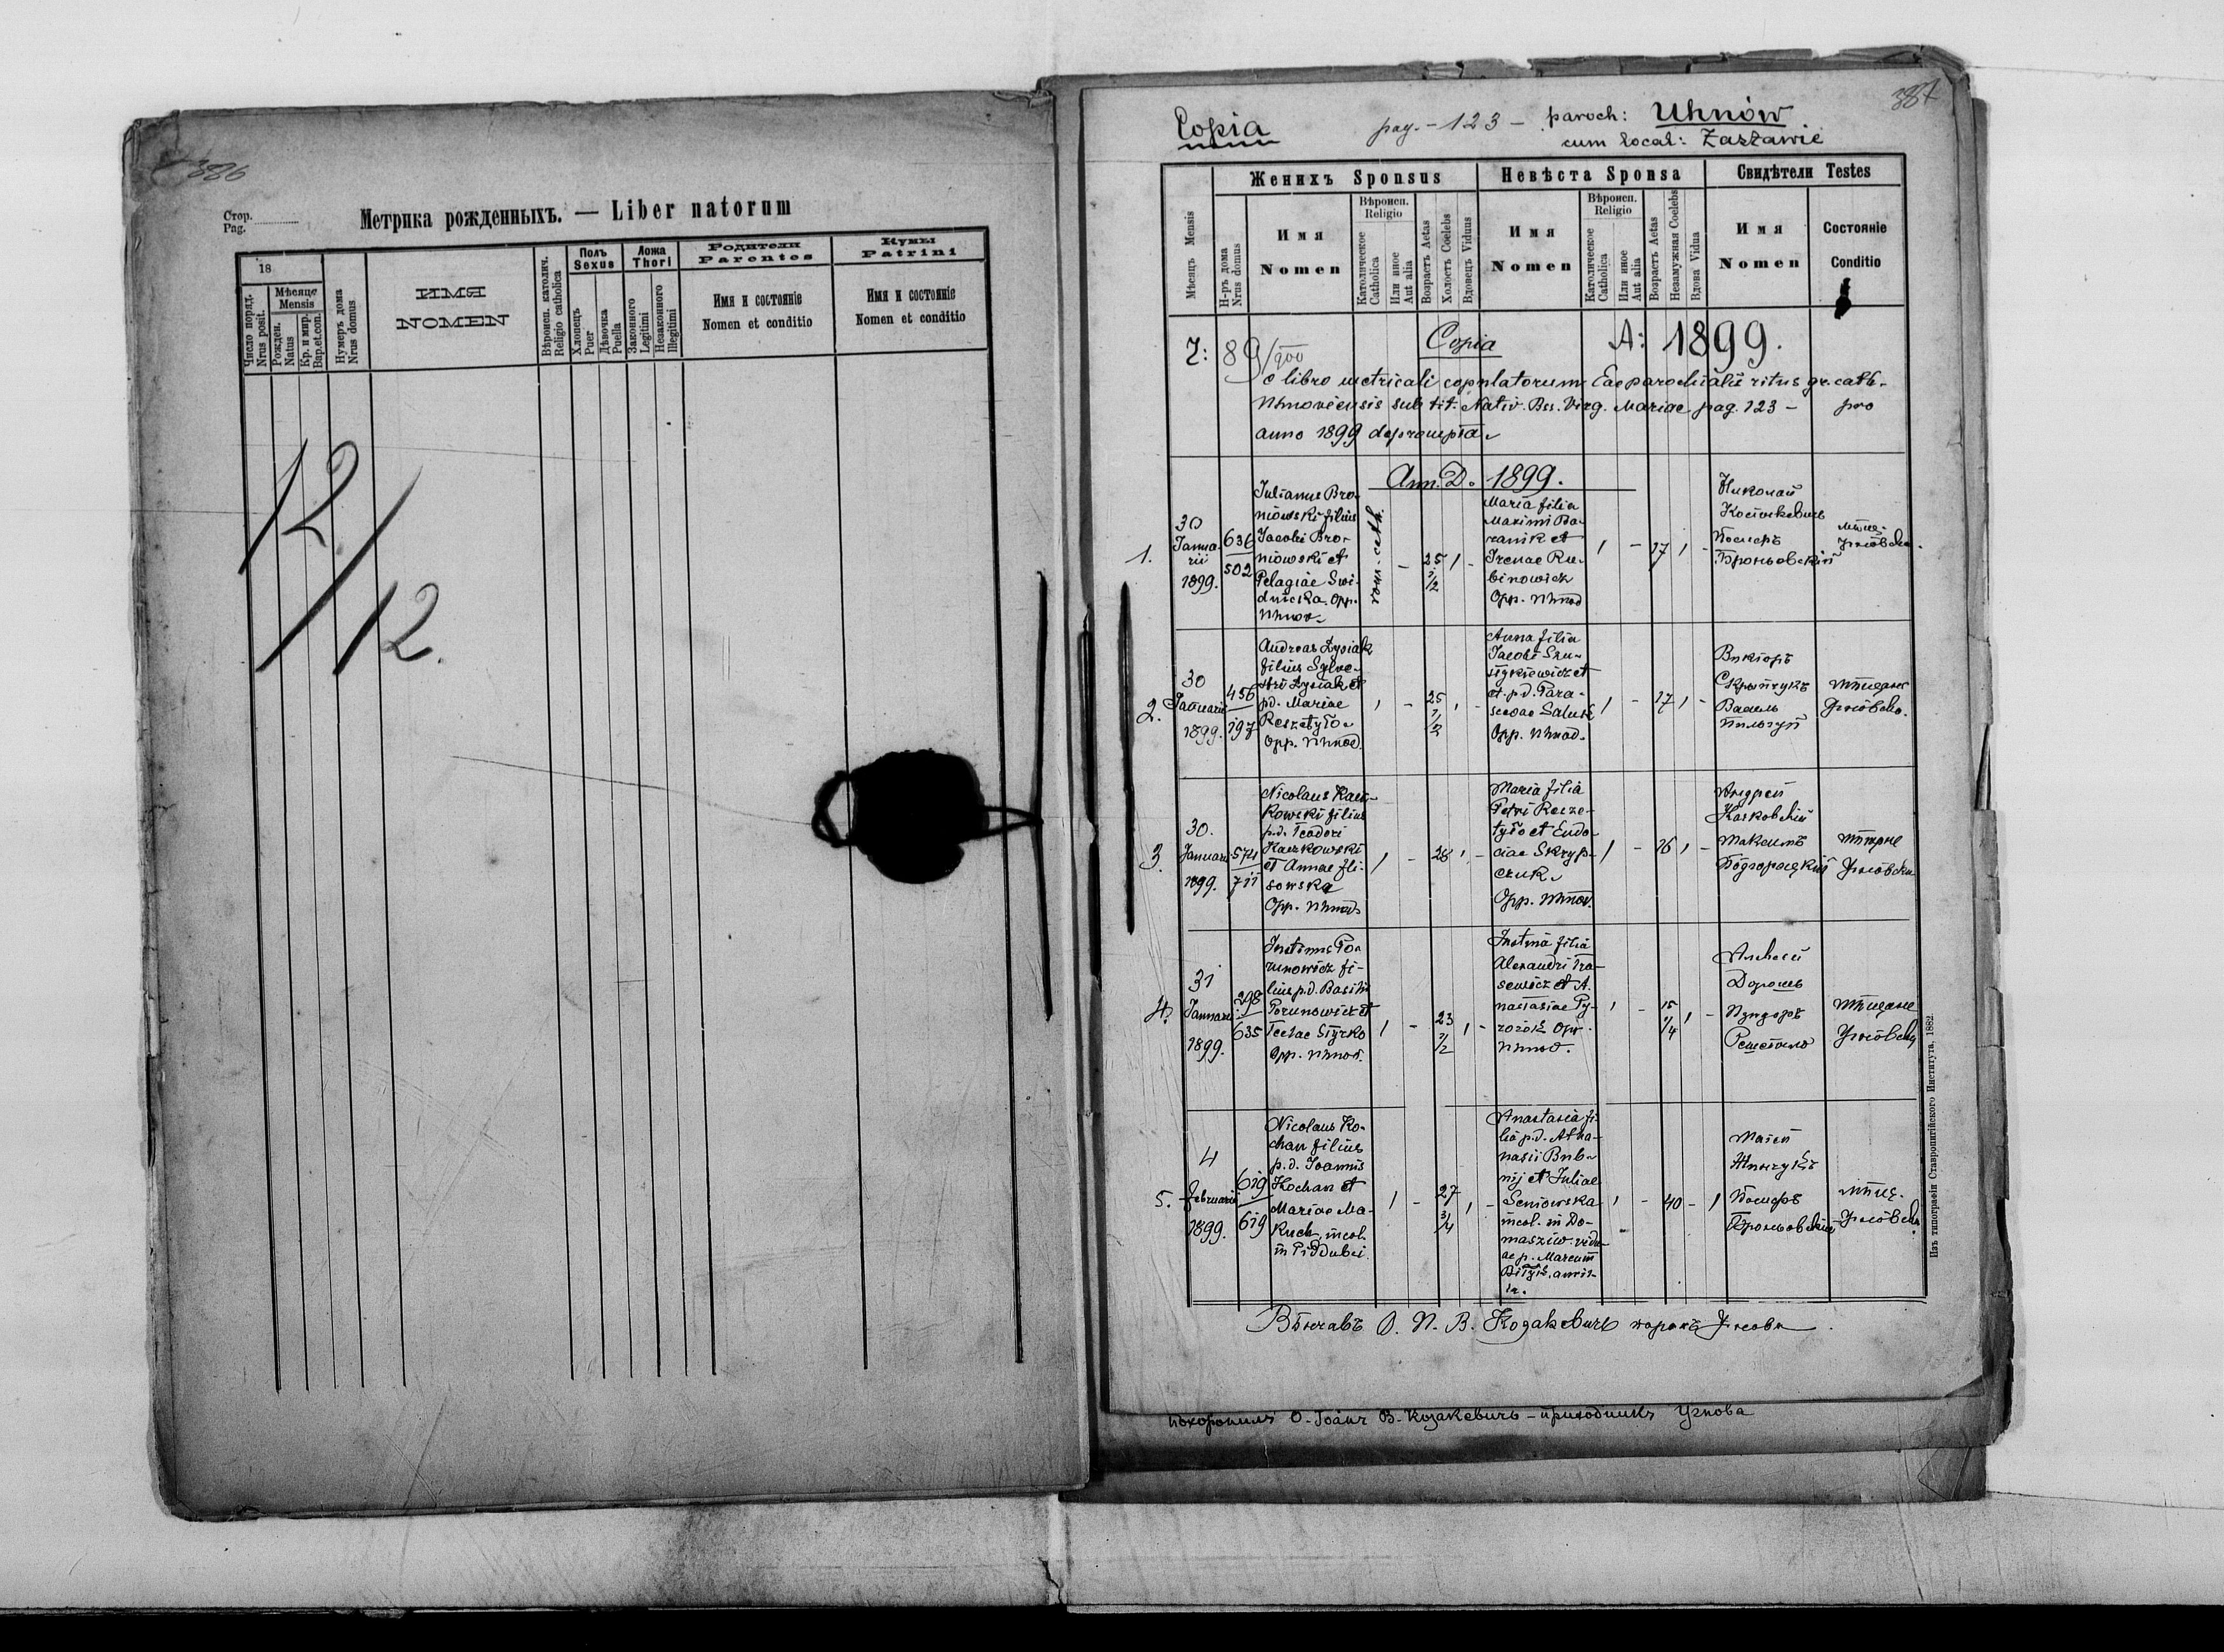 386
Стор.
Pag.
Метрика рожденныхъ. — Liber natorum
18
Число поряд.
Nrus posit.
Мѣсяце
Mensis
Рожден.
Natus
Кр. и мир.
Bap.et.con.
Нумеръ дома
Nrus domus
ИМЯ
NOMEN
Вѣроисп. католич.
Religio catholica
Полъ
Sexus
Хлопецъ
Puer
Дѣвочка
Puella
Ложа
Thori
Законного
Legitimi
Незаконного
Illegitimi
Родители
Parentes
Имя и состояніе
Nomen et conditio
Кумы
Patrini
Имя и состояніе
Nomen et conditio
12
12.
387
Copia
pag. - 123 - paroch: Uhnów
cum local: Zastawie
Мѣсяцъ Mensis
Н-ръ дома
Nrus domus
Женихъ Sponsus
Имя
Nomen
Вѣроисп.
Religio
Католическое
Catholica
Или иное
Aut alia
Возрастъ Aetas
Холостъ Coelebs
Вдовецъ Viduus
Невѣста Sponsa
Имя
Nomen
Вѣроисп.
Religio
Католическое
Catholica
Или иное
Aut alia
Возрастъ Aetas
Незамужная Coelebs
Вдова Vidua
Свидѣтели Testes
Имя
Nomen
Состояніе
Conditio
Z: 89/900 Copia A: 1899.
e libro metricali copulatorum Eae parochialis ritus gr. cath.
Uhnoviensis sub tit. Nativ. Bss. Virg. Mariae pag. 123 - pro
anno 1899 deprompta.
Ann. D. 1899.
1.
30
Janua-
rii
1899.
636
502
Julianus Bro-
niowski filius
Jacobi Bro-
niowski et
Pelagiae Swi-
dnicka. Opp.
Uhnov.
rom. cath.
-
25
1/2
1
-
Maria filia
Maximi Ba-
ranik et
Irenae Ru-
binowicz
Opp. Uhnov
1
-
17
1
-
Николай
Костькевичъ
Іосифъ
Броньовскій
мѣщ.
Угнôвски.
2.
30
Januarii
1899.
456
197
Andreas Łysiak
filius Sylve-
stri Łysiak et
p.d. Mariae
Reszetyło.
Opp. Uhnov.
1
-
25
1/2
1
-
Anna filia
Jacobi
et. p.d. Para-
scevae
Opp. Uhnov.
1
-
17
1
-
Викторъ
Скрыпчукъ
Василь
мѣщане
Угнôвски.
3.
30.
Januarii
1899.
574
711
Nicolaus Kacz-
kowski filius
p.d. Teodori
Kaczkowski
et Annae Hli-
sowska
Opp. Uhnov.
1
-
26
1
-
Maria filia
Petri Resze-
tyło et Eudo-
ciae Skryp-
czuk.
Opp. Uhnov.
1
-
16
1
-
Андрей
Качковскій
Максимъ
Пôдгородецкій
мѣщане
Угнôвски
4.
31
Januarii
1899.
298
635
Justinus Po-
runowicz fi-
lius p.d. Basilii
Porunowicz et
Teclae
Opp. Uhnov.
1
-
23
1/2
1
-
Justina filia
Alexandri
et A-
nastasiae Py-
Opp.
Uhnov.
1
-
15
1/4
1
-
Алексей
Дорошъ
Решетыло
мѣщане
Угнôвски
5.
4
Februarii
1899.
619
619
Nicolaus Ko-
chan filius
p.d. Joannis
Kochan et
Mariae Ma-
kuch, incol.
in Piddubci.
1
-
27
3/4
1
-
Anastasia fi-
lia p.d. Atha-
nasii Bub-
nij et Juliae
Seniowska
incol. in Do-
masziw. vidu-
ae p. Marcum
1
-
40
-
1
Матей
Іосифъ
Броньовскій
мѣщ.
Угнôвски.
Вѣнчавъ О. И. В. Козакевичъ парохъ Угнова.
похоронилъ О. Іоаннъ В. Козакевичъ - приходникъ Угнова
Изъ типографіи Ставропигійского Института. 1882.